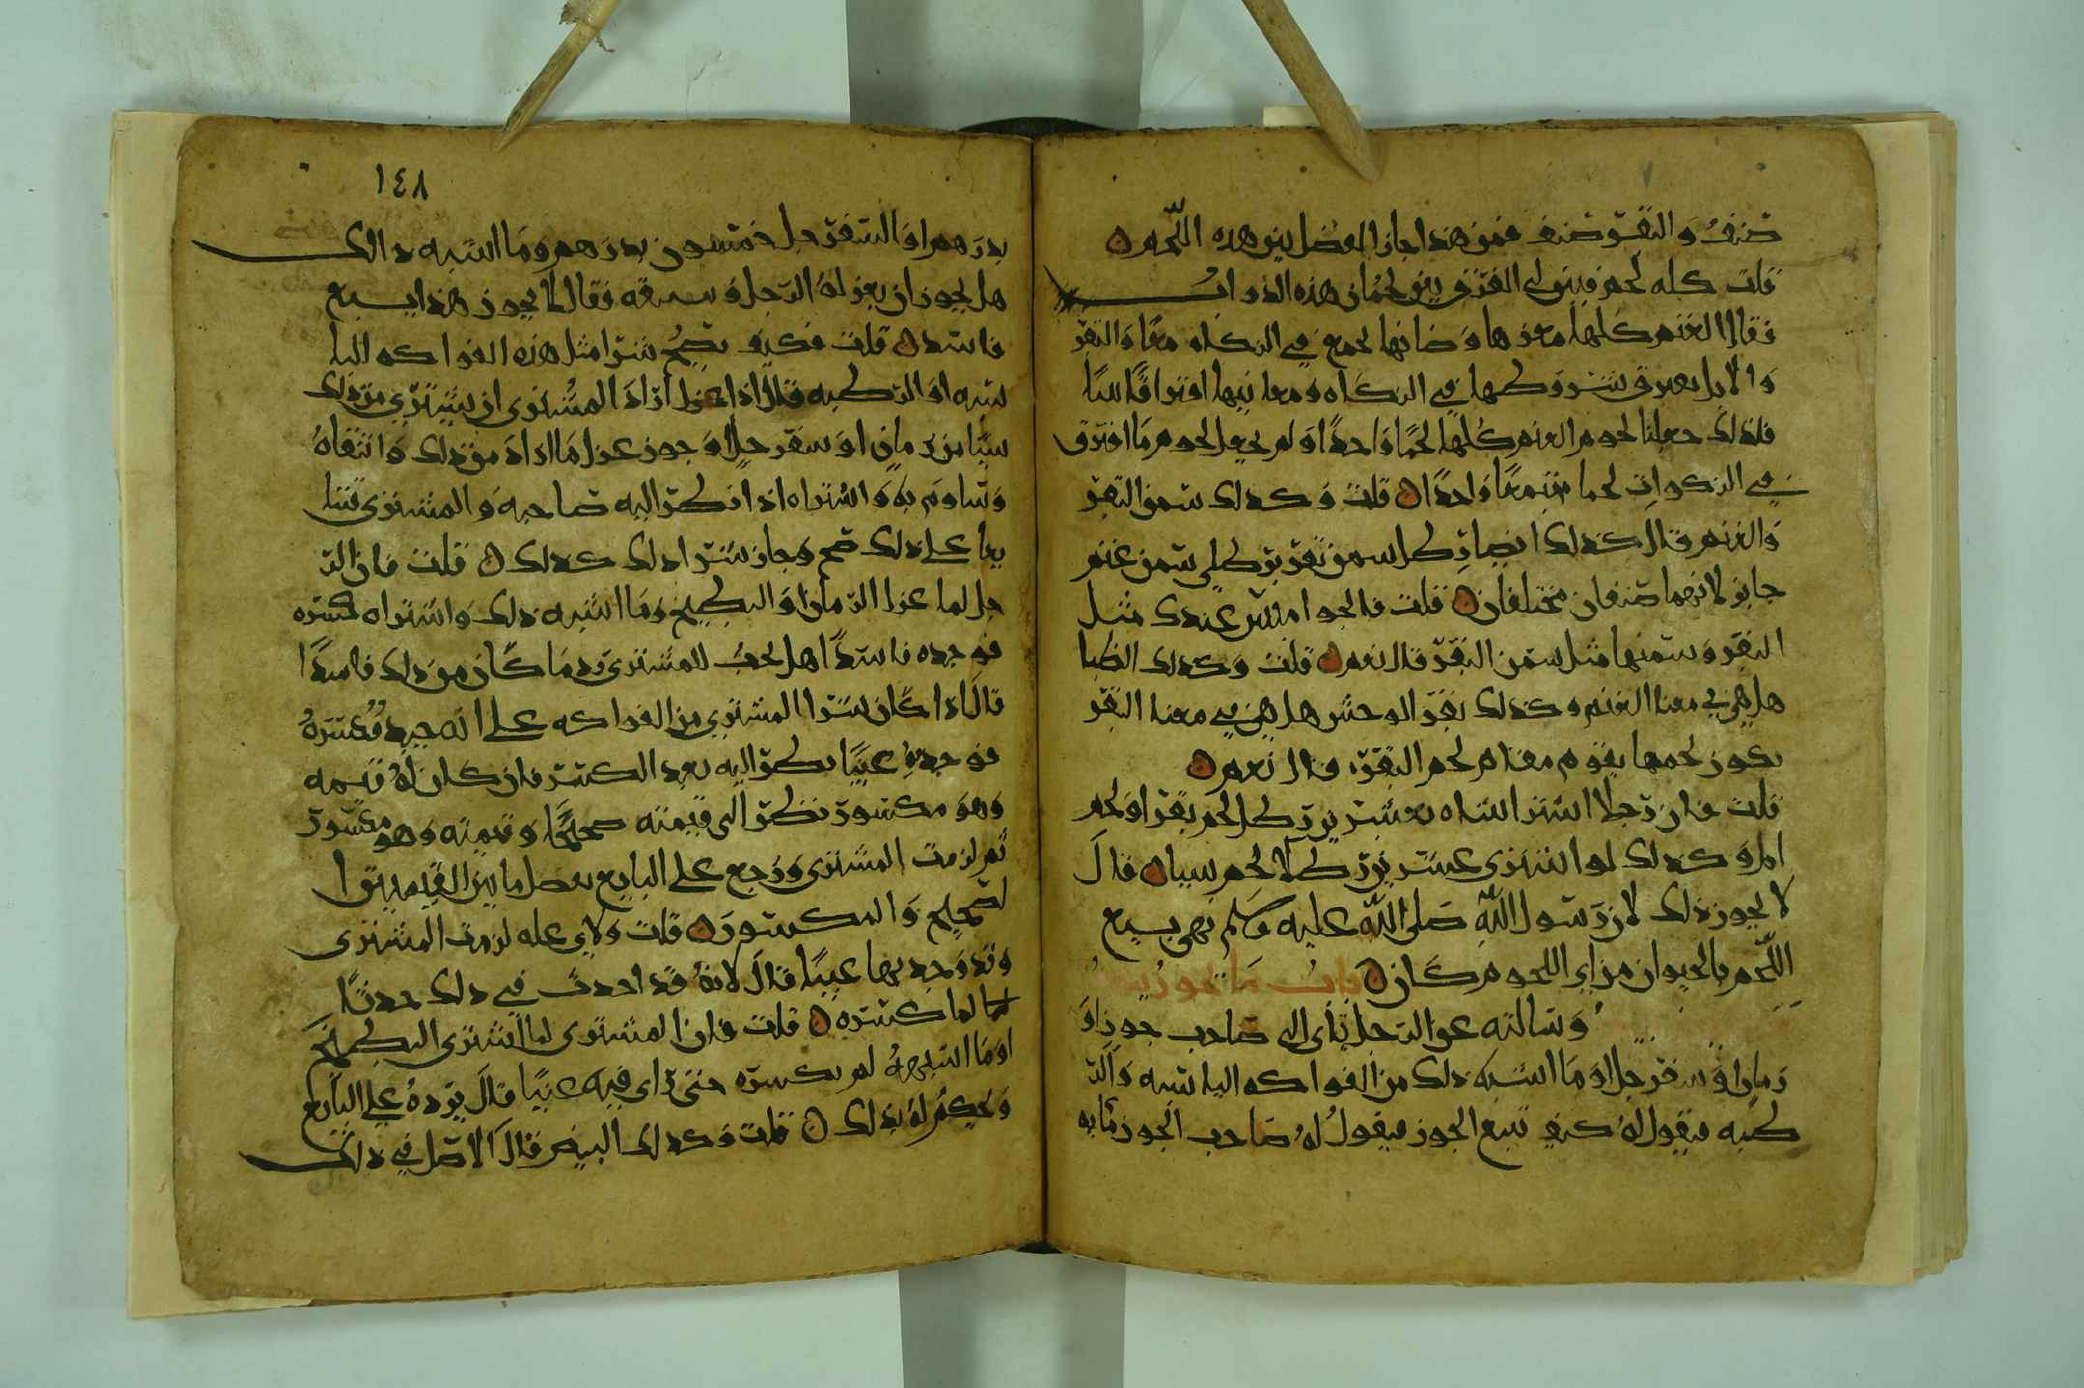 صنف والبقر صنف فمن هذا جاز الفضل بين هذه اللحم
قلت كله لحم فبين لي الفرق بين لحمان هذه الدواب
فقال الغنم كلها معزها وضانها تجمع في الزكاه معا والبقر
والابل يفرق بينهما في الزكاه ومعانيها
فلذلك جعلنا لحوم الغنم كلها لحما واحدا ولم نجعل لحوم ما افترق
في الزكوات لحما مجتمعا واحدا قلت وكذلك سمن البقر
والغنم قال كذلك ايضا رطل سمن بقر برطلي سمن غنم
جايز لانهما صنفان مختلفان قلت فالجواميس عندك مثل
البقر وسمنها مثل سمن البقر قال نعم قلت وكذلك الظبا
هل هي في معنا الغنم وكذلك بقر الوحش هل هي في معنا البقر
يكون لحمها يقوم مقام لحم البقر قال نعم
قلت فان رجلا اشترا شاه بعشرين رطل لحم بقر او لحم
ابل وكذلك لو اشترى عشرين رطلا لحم بشاه قال
لا يجوز ذلك لان رسول الله صلى الله عليه وسلم نهى بيع
اللحم بالحيوان من اي اللحوم كان باب ما يجوز بيعه
وسالته عن الرجل ياتي الى صاحب جوز او
رمان او سفرجل او ما اشبه ذلك من الفواكه اليابسه والر
طبه فيقول له كيف تبيع الجوز فيقول له صاحب الجوز مايه
١٤٨
بدرهم او السفرجل خمسون بدرهم وما اشبه ذلك
هل يجوز ان يعزله الرجل فقال لا يجوز هذا بيع
فاسد قلت فكيف يصح شرا مثل هذه الفواكه اليا
بسه او الرطبه قال اذا اراد المشتري ان يشتري من ذلك
شيا من رمان او سفرجل او جوز عزل ما اراد من ذلك وانتقاه
وساوم به واشتراه اذا نظر اليه صاحبه والمشتري تبا
يعا على ذلك صح وجاز شرا ذلك كذلك قلت فان الر
جل لما عزل الرمان او البطيخ وما اشبه ذلك واشتراه فكسره
فوجده فاسدا هل يجب للمشتري رد ما كان من ذلك فاسدا
قال اذا كان شرا المشتري من الفواكه على انه جيد فكسره
فوجد فيه عيبا نظر اليه بعد الكسر فان كان له قيمه
وهو مكسور نظر الى قيمته صحيحا وقيمته وهو مكسور
ثم لزمت المشتري ورجع على البايع بفضل ما بين القيمتين ا
لصحيح والمكسور قلت ولاي عله لزمت المشتري
وقد وجد بها عيبا قال لانه قد احدث في ذلك حدثا
لما كسره قلت فان المشتري لما اشترى البطيخ
او ما اشبهه لم يكسره حتى راى فيه عيبا قال يرده على البايع
ويحكم له بذلك قلت وكذلك البيض قال الاصل في ذلك